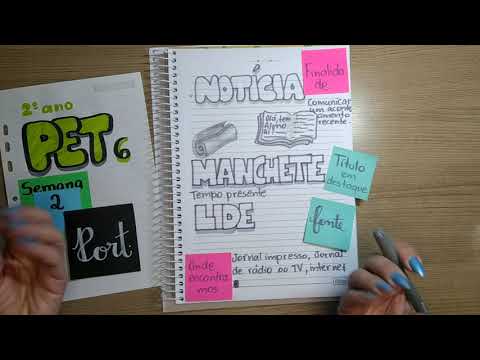 2º ano
PET 6
Semana
2
Port.
NOTÍCIA
Finalida
de
Comunicar
um aconte
cimento
recente
MANCHETE
Título
em
destaque
Tempo presente
LIDE
fonte
Onde
encontra
mos
Jornal impresso, Jornal
de rádio ou TV, internet